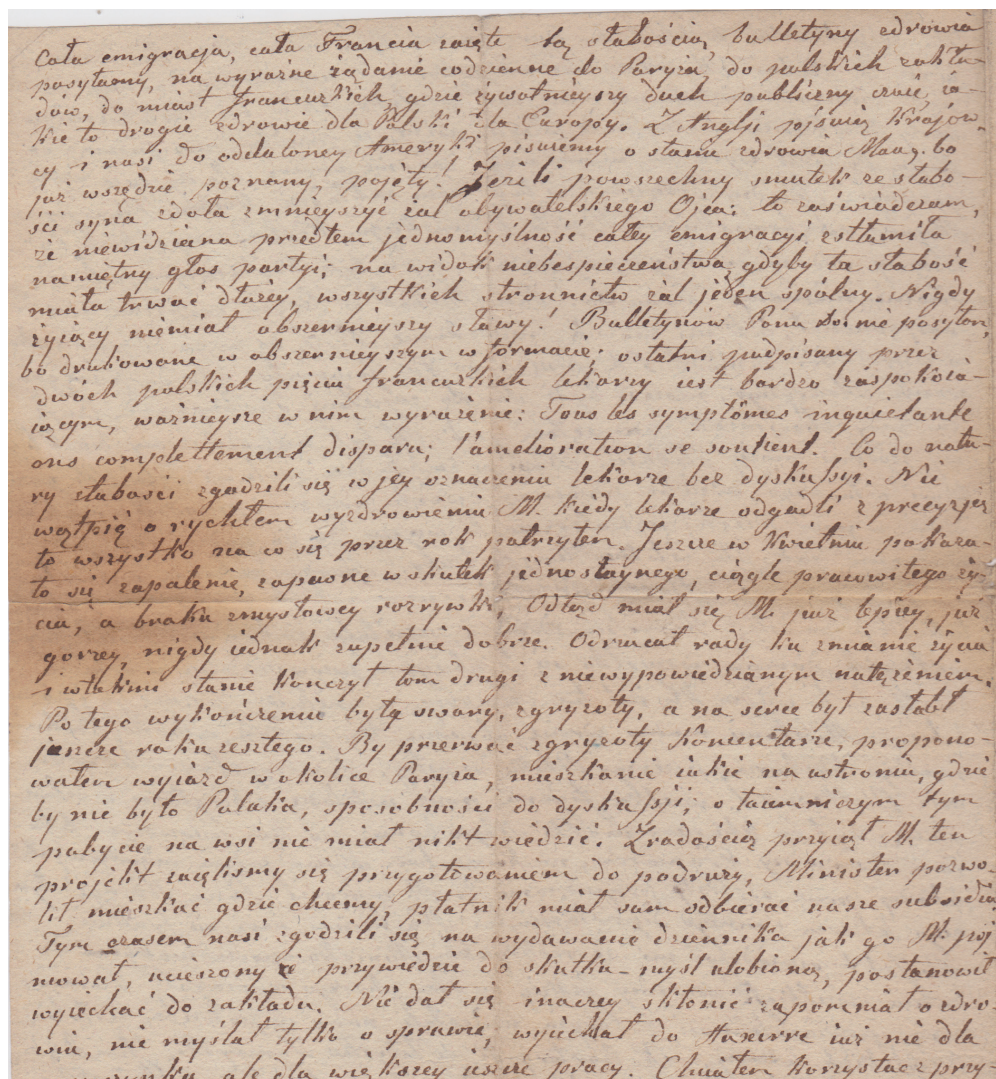 Cała emigracja, cała Francia zaięte są słabością, bulletyny zdrowia
posyłamy, na wyraźne żądanie codzienne do Paryża, do polskich zakła-
dów, do miast francuzkich, gdzie żywotnieyszy duch publiczny czuie, ia-
kie to drogie zdrowie dla Polski dla Europy. Z Anglji pójśmią Krajow-
cy i nasi do oddaloney Ameryki piszemy o stanu zdrowia Maur. bo
już wszędzie poznany, pojęty! Jeżli powszechny smutek ze słabo-
ści syna zdoła zmnieyszyć żal obywatelskiego Ojca: to zaświadczam,
że niewidziana przedtem jednomyślność całey emigracyi zstłumiła
namiętny głos partyi; na widok niebespieczeństwa, gdyby ta słabość
miała trwać dłużey, wszystkich stronnictw żal jeden spólny. Nigdy
żyiący niemiał obszernieyszy sławy! Bulletynów Panu Do. nie posyłam,
bo drukowane w obszernieyszym w formacie; ostatni podpisany przez
dwóch polskich pięciu francuzkich lekarzy iest bardzo zaspokoia-
iącym, ważnieysze w nim wyrażenie: Tous les symptômes inquietants
ons complettement disparu; l'amelioration se soutient. Co do natu-
ry słabości zgodzili się w jey oznaczeniu lekarze bez dyskussyi. Nie
wątpię o rychłem wyzdrowieniu M. kiedy lekarze odgadli z precyzją
to wszystko na co się przez rok patrzyłem. Jeszcze w Kwietniu pokaza-
ło się zapalenie, zapasne w skutek jednostaynego, ciągle pracowitego ży-
cia, a braku zmysłowey rozrywki, Odtąd miał się M. już lepiey, już
gorzey, nigdy iednak zupełnie dobrze. Odrzucał rady ku zmianie życia
i w takim stanie kończył tom drugi z niewypowiedzianym natężeniem.
Po tego wykończenie były swary, zgryzoty, a na serce był zasłabł
jeszcze roku zeszłego. By przerwać zgryzoty Komentarze, propono-
wałem wyiazd w okolice Paryża, mieszkanie iakie na ustroniu, gdzie
by nie było Polaka, sposobności do dyskussji; o taiemniczym tym
pobycie na wsi nie miał nikt wiedzić. Z radością przyiął M. ten
projekt zaięliśmy się przygotowaniem do podruży, Minister pozwo-
lił mieszkać gdzie chcemy, płatnik miał sam odbierać nasze subsidia
Tym czasem nasi zgodzili się na wydawanie dziennika jak go M. poj
mował, ucieszony iż przywiedzie do skutku myśl ulubioną, postanowił
wyiechać do zakładu. Nie dał się inaczey skłonić zapomniał o zdro-
wiu, nie myślał tylko o sprawie, wyiechał do Auxerre iuż nie dla
ale dla większey ieszcze pracy. Chciałem korzystać z przy-